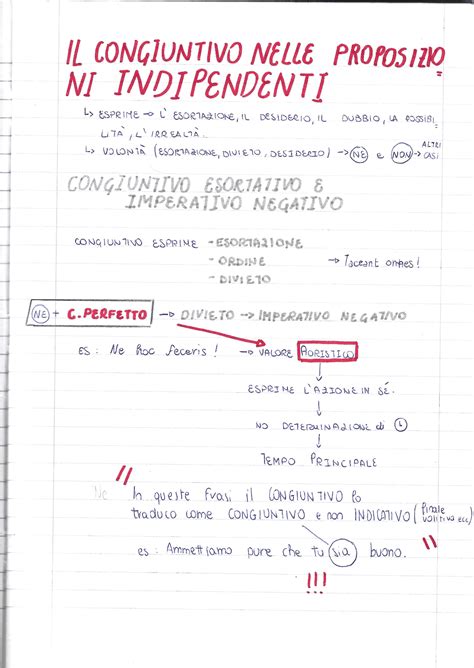 IL CONGIUNTIVO NELLE PROPOSIZIO
NI INDIPENDENTI
↳ ESPRIME → L'ESORTAZIONE, IL DESIDERIO, IL DUBBIO, LA POSSIBI
LITÀ, L'IRREALTÀ.
↳ VOLONTÀ (ESORTAZIONE, DIVIETO, DESIDERIO) → NE e NON → ALTRI CASI
CONGIUNTIVO ESORTATIVO E
IMPERATIVO NEGATIVO
CONGIUNTIVO ESPRIME - ESORTAZIONE
- ORDINE → Taceant omnes!
- DIVIETO
NE + C. PERFETTO → DIVIETO → IMPERATIVO NEGATIVO
ES: Ne hoc feceris! → VALORE AORISTICO
↓
ESPRIME L'AZIONE IN SÉ.
↓
NO DETERMINAZIONE di
↓
TEMPO PRINCIPALE
" Ne In queste frasi il CONGIUNTIVO lo
traduco come CONGIUNTIVO e non INDICATIVO (finale
volitivo ecc)
es: Ammettiamo pure che tu sia buono. "
!!!